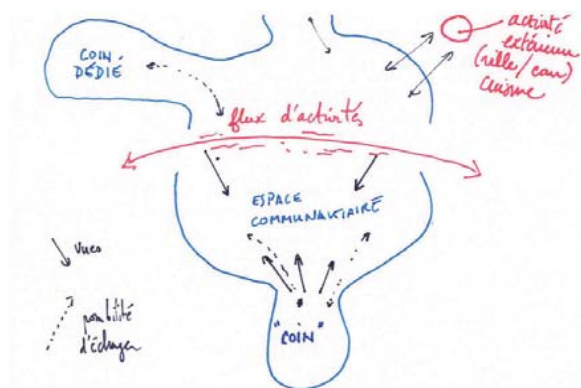 COIN
DÉDIÉ
activité
extérieure
(ville/cour)
cuisine
flux d'activités
ESPACE
COMMUNAUTAIRE
vues
possibilité
d'échanger
"COIN"